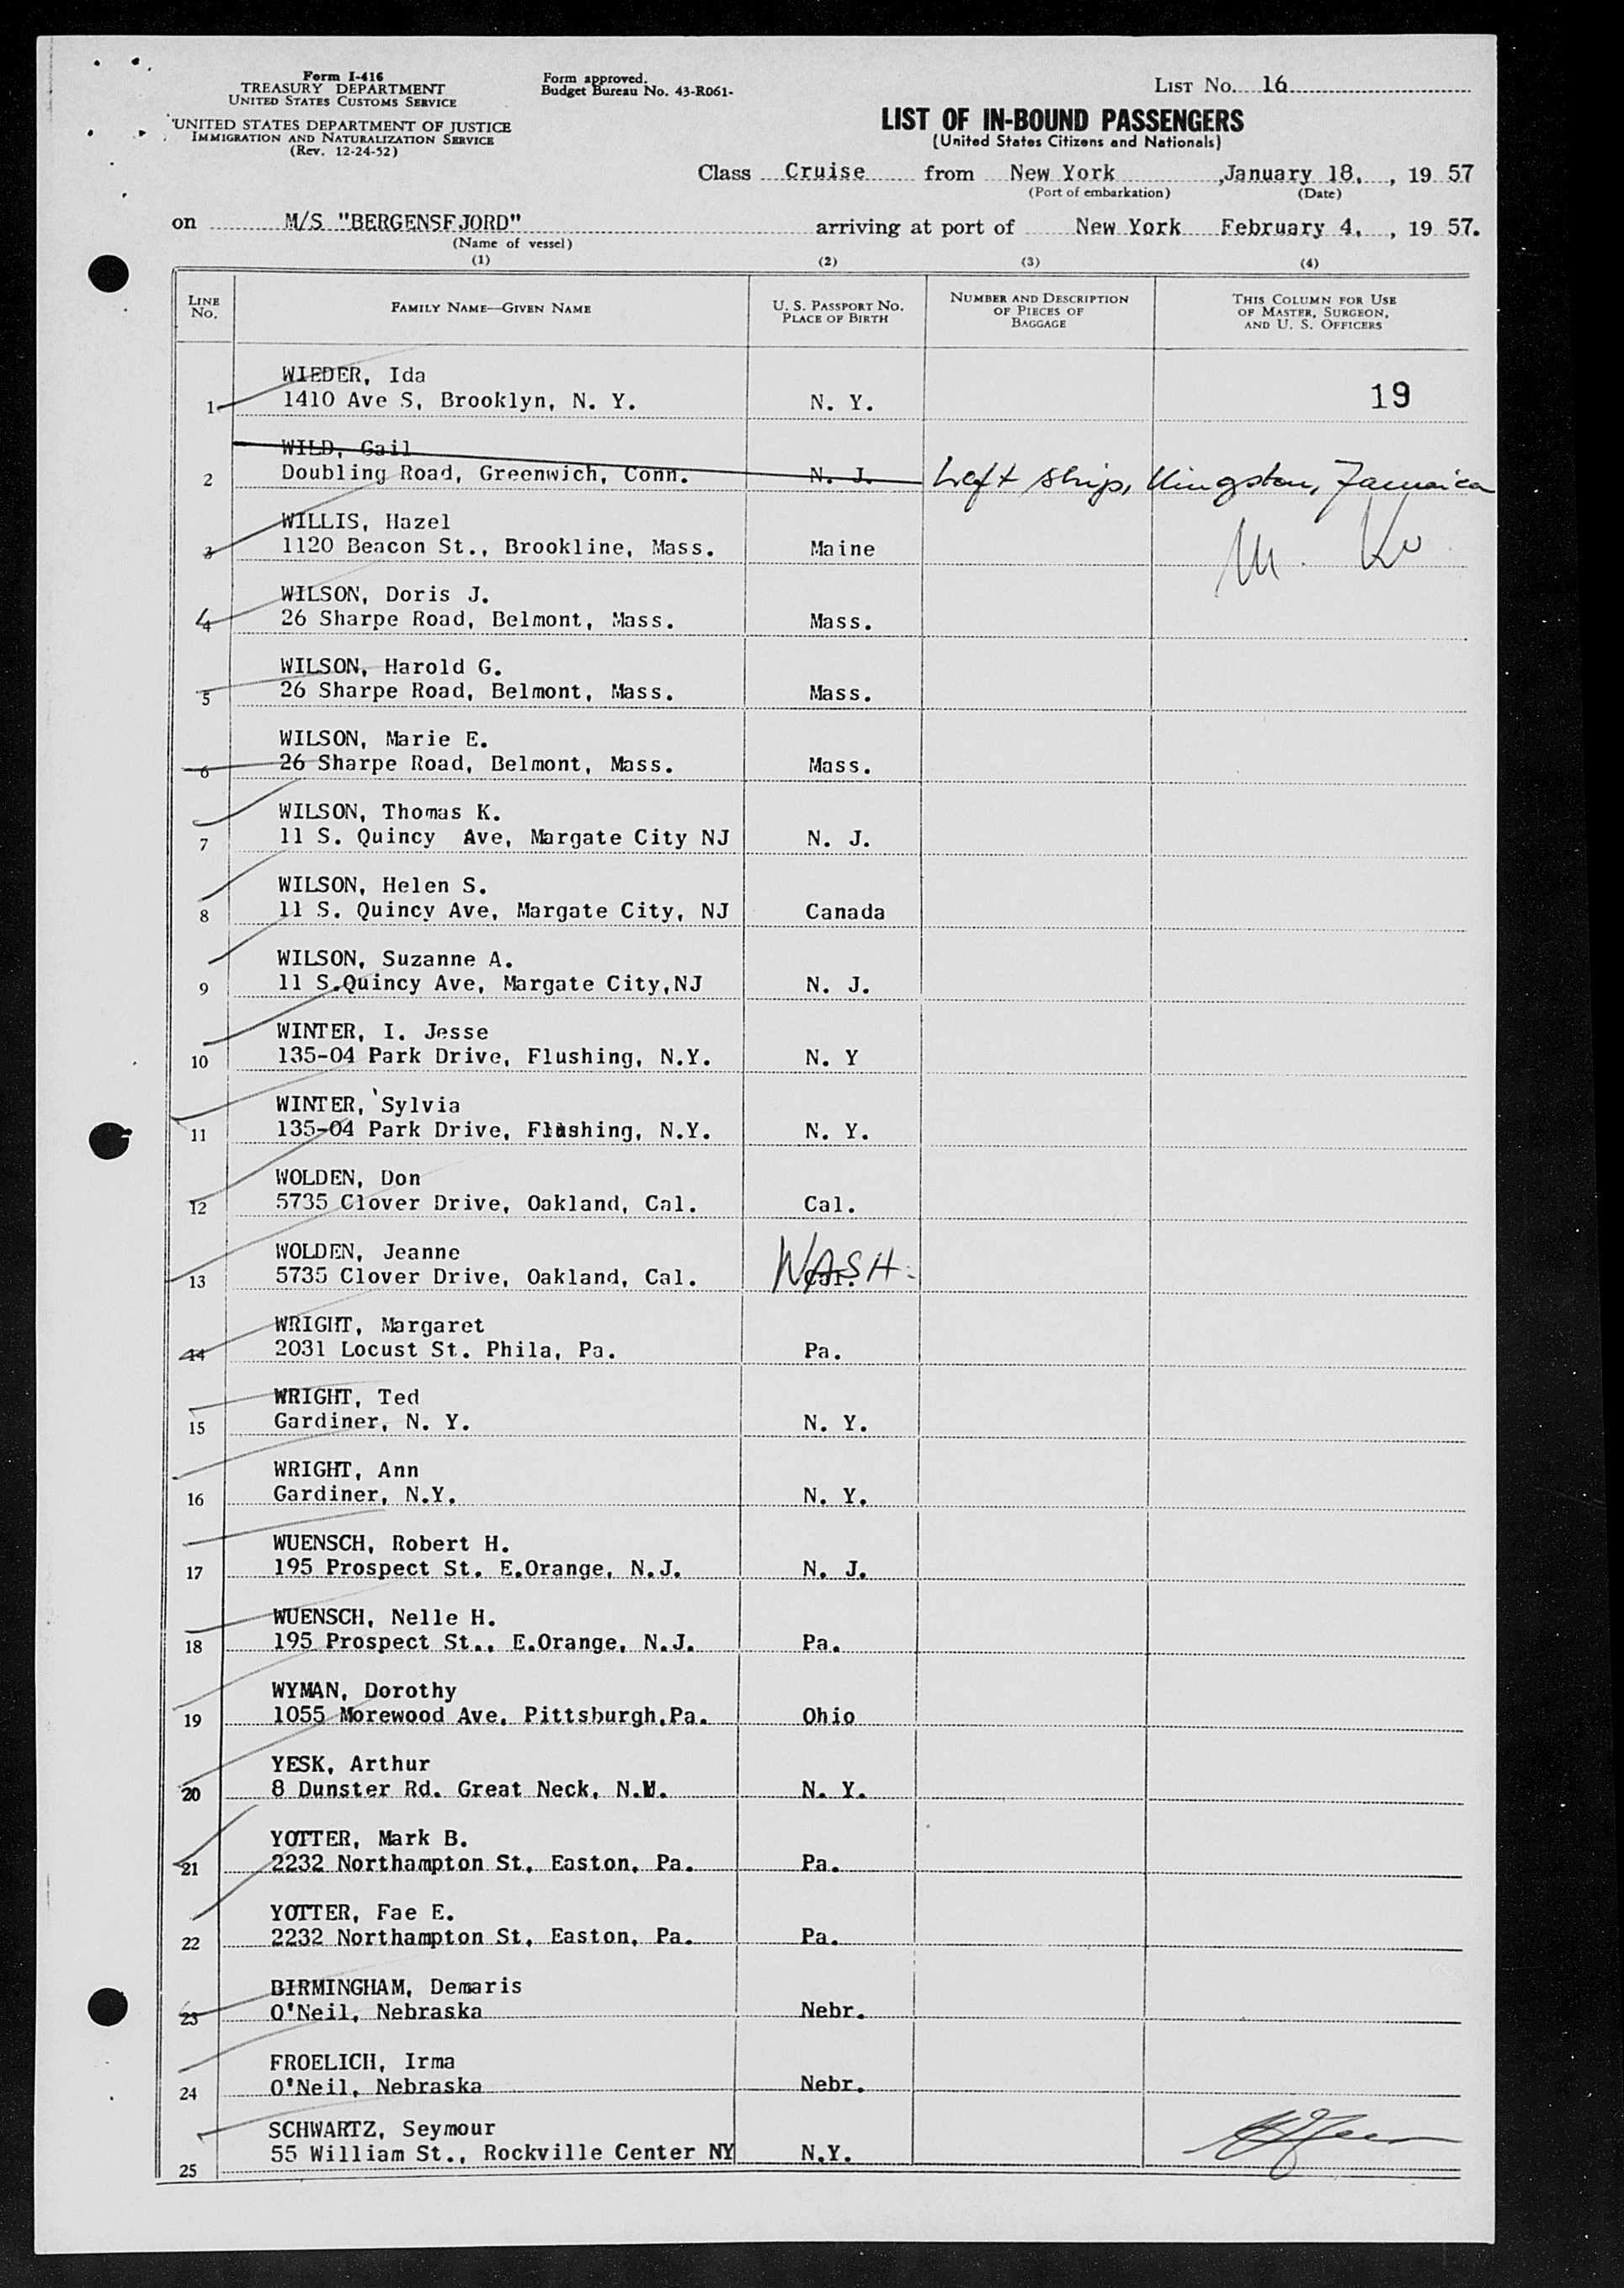 Form I-416
TREASURY DEPARTMENT
UNITED STATES CUSTOMS SERVICE
UNITED STATES DEPARTMENT OF JUSTICE
IMMIGRATION AND NATURALIZATION SERVICE
(Rev. 12-24-52)
Form approved.
Budget Bureau No. 43-R061-
LIST No. 16
LIST OF IN-BOUND PASSENGERS
(United States Citizens and Nationals)
Class Cruise from New York , January 18, , 19 57
(Port of embarkation) (Date)
on M/S "BERGENSFJORD" arriving at port of New York February 4, , 19 57.
(Name of vessel)
(1) (2) (3) (4)
LINE No. FAMILY NAME—GIVEN NAME U. S. PASSPORT NO. PLACE OF BIRTH NUMBER AND DESCRIPTION OF PIECES OF BAGGAGE THIS COLUMN FOR USE OF MASTER, SURGEON, AND U. S. OFFICERS
WIEDER, Ida
1 1410 Ave S, Brooklyn, N. Y. N. Y. 19
WILD, Gail
2 Doubling Road, Greenwich, Conn. N. J. Left ship, Kingston, Jamaica
WILLIS, Hazel
3 1120 Beacon St., Brookline, Mass. Maine
WILSON, Doris J.
4 26 Sharpe Road, Belmont, Mass. Mass.
WILSON, Harold G.
5 26 Sharpe Road, Belmont, Mass. Mass.
WILSON, Marie E.
6 26 Sharpe Road, Belmont, Mass. Mass.
WILSON, Thomas K.
7 11 S. Quincy Ave, Margate City NJ N. J.
WILSON, Helen S.
8 11 S. Quincy Ave, Margate City, NJ Canada
WILSON, Suzanne A.
9 11 S.Quincy Ave, Margate City,NJ N. J.
WINTER, I. Jesse
10 135-04 Park Drive, Flushing, N.Y. N. Y
WINTER, Sylvia
11 135-04 Park Drive, Flushing, N.Y. N. Y.
WOLDEN, Don
12 5735 Clover Drive, Oakland, Cal. Cal.
WOLDEN, Jeanne
13 5735 Clover Drive, Oakland, Cal. Cal. WASH.
WRIGHT, Margaret
14 2031 Locust St. Phila, Pa. Pa.
WRIGHT, Ted
15 Gardiner, N. Y. N. Y.
WRIGHT, Ann
16 Gardiner, N.Y. N. Y.
WUENSCH, Robert H.
17 195 Prospect St. E.Orange, N.J. N. J.
WUENSCH, Nelle H.
18 195 Prospect St., E.Orange, N.J. Pa.
WYMAN, Dorothy
19 1055 Morewood Ave. Pittsburgh,Pa. Ohio
YESK, Arthur
20 8 Dunster Rd. Great Neck, N.Y. N. Y.
YOTTER, Mark B.
21 2232 Northampton St, Easton, Pa. Pa.
YOTTER, Fae E.
22 2232 Northampton St, Easton, Pa. Pa.
BIRMINGHAM, Demaris
23 O'Neil, Nebraska Nebr.
FROELICH, Irma
24 O'Neil, Nebraska Nebr.
SCHWARTZ, Seymour
25 55 William St., Rockville Center NY N.Y.